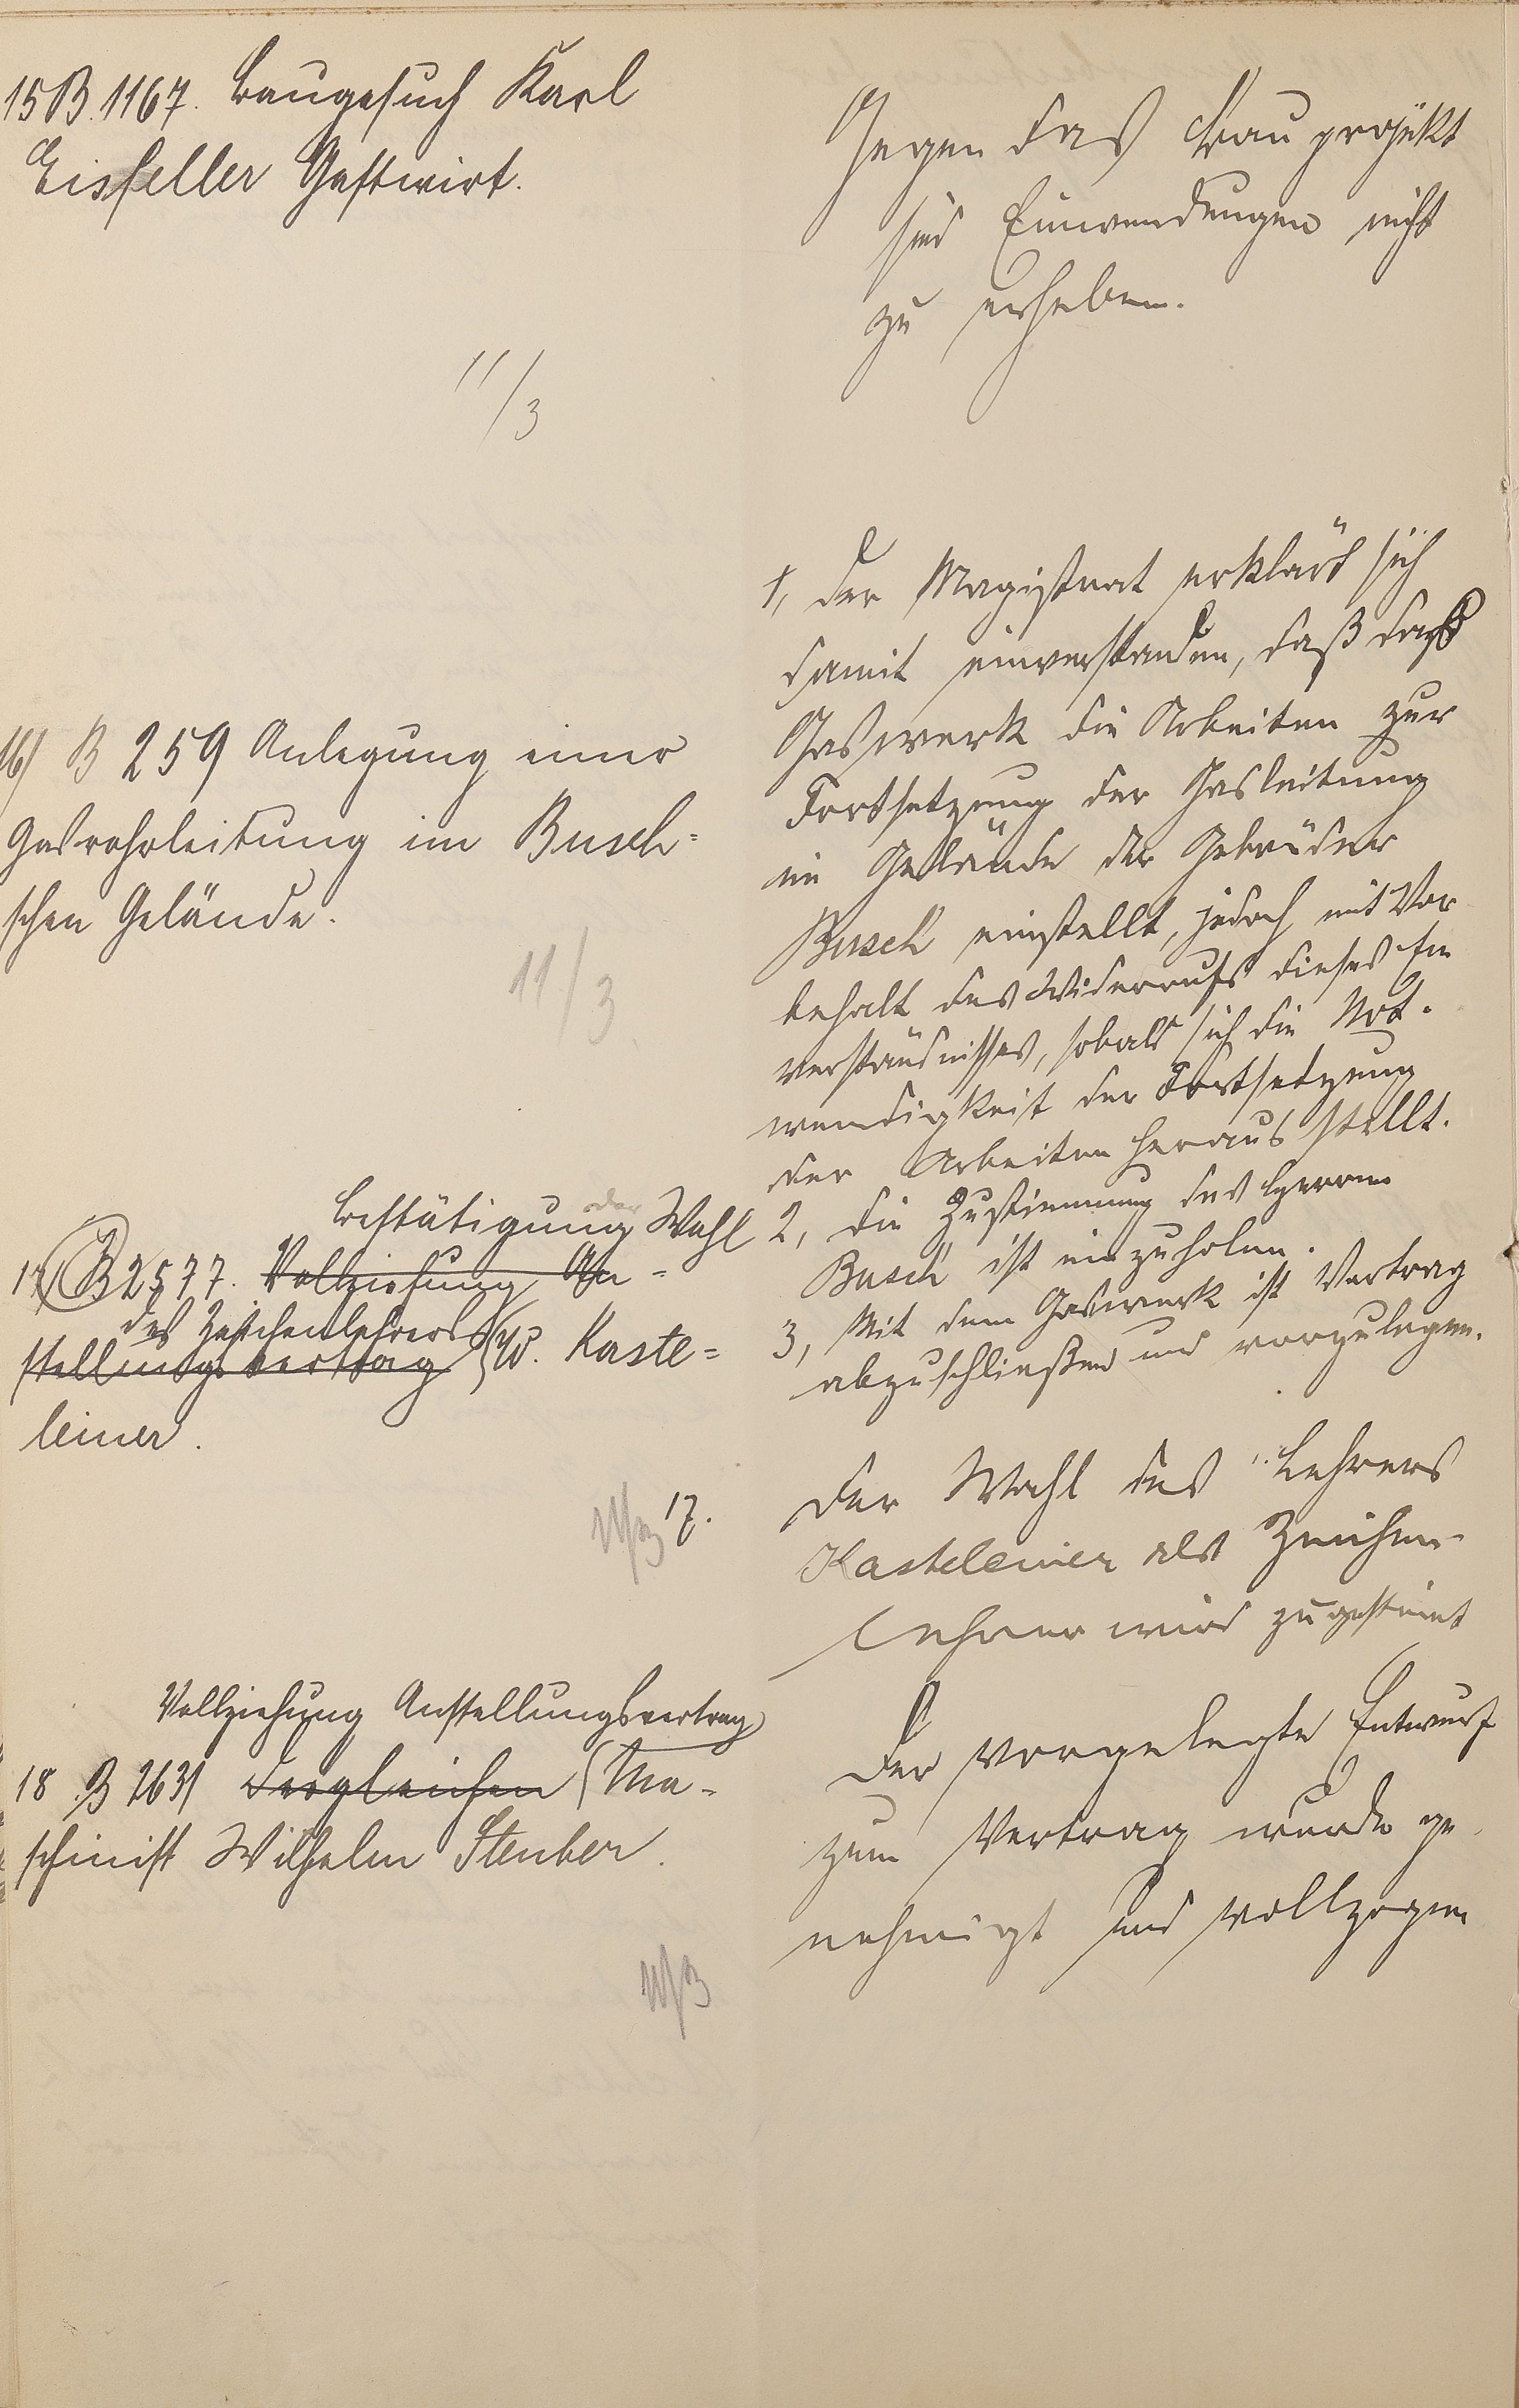 15 B. 1167. Baugesuch Karl
Eisfeller Gastwirt.
11/3
Gegen das Bauprojekt
sind Einwendungen nicht
zu erheben.
16/ B 259 Anlegung einer
Gasrohrleitung im Busch=
schen Gelände.
11/3.
1, Der Magistrat erklärt sich
damit einverstanden, daß das
Gaswerk die Arbeiten zur
Fortsetzung der Gasleitung
im Gelände der Gebrüder
Busch einstellt, jedoch mit Vor
behalt des Widerrufs dieses Ein
verständnisses, sobald sich die Not-
wendigkeit der Fortsetzung
der Arbeiten heraus stellt.
2, Die Zustimmung des Herrn
Busch ist einzuholen.
3, Mit dem Gaswerk ist Vertrag
abzuschließen und vorzulegen.
Bestätigung der Wahl
17/ B 2577. Vollziehung An=
des Zeichenlehrers
stellungsvertrag W. Kaste=
leiner.
11/3 17.
Der Wahl des Lehrers
Kasteleiner als Zeichen-
lehrer wird zugestimt
Vollziehung Anstellungsvertrag
18 B 2631 Desgleichen Ma=
schinist Wilhelm Steuber.
11/3
Der vorgelegte Entwurf
zum Vertrag wurde ge-
nehmigt und vollzogen